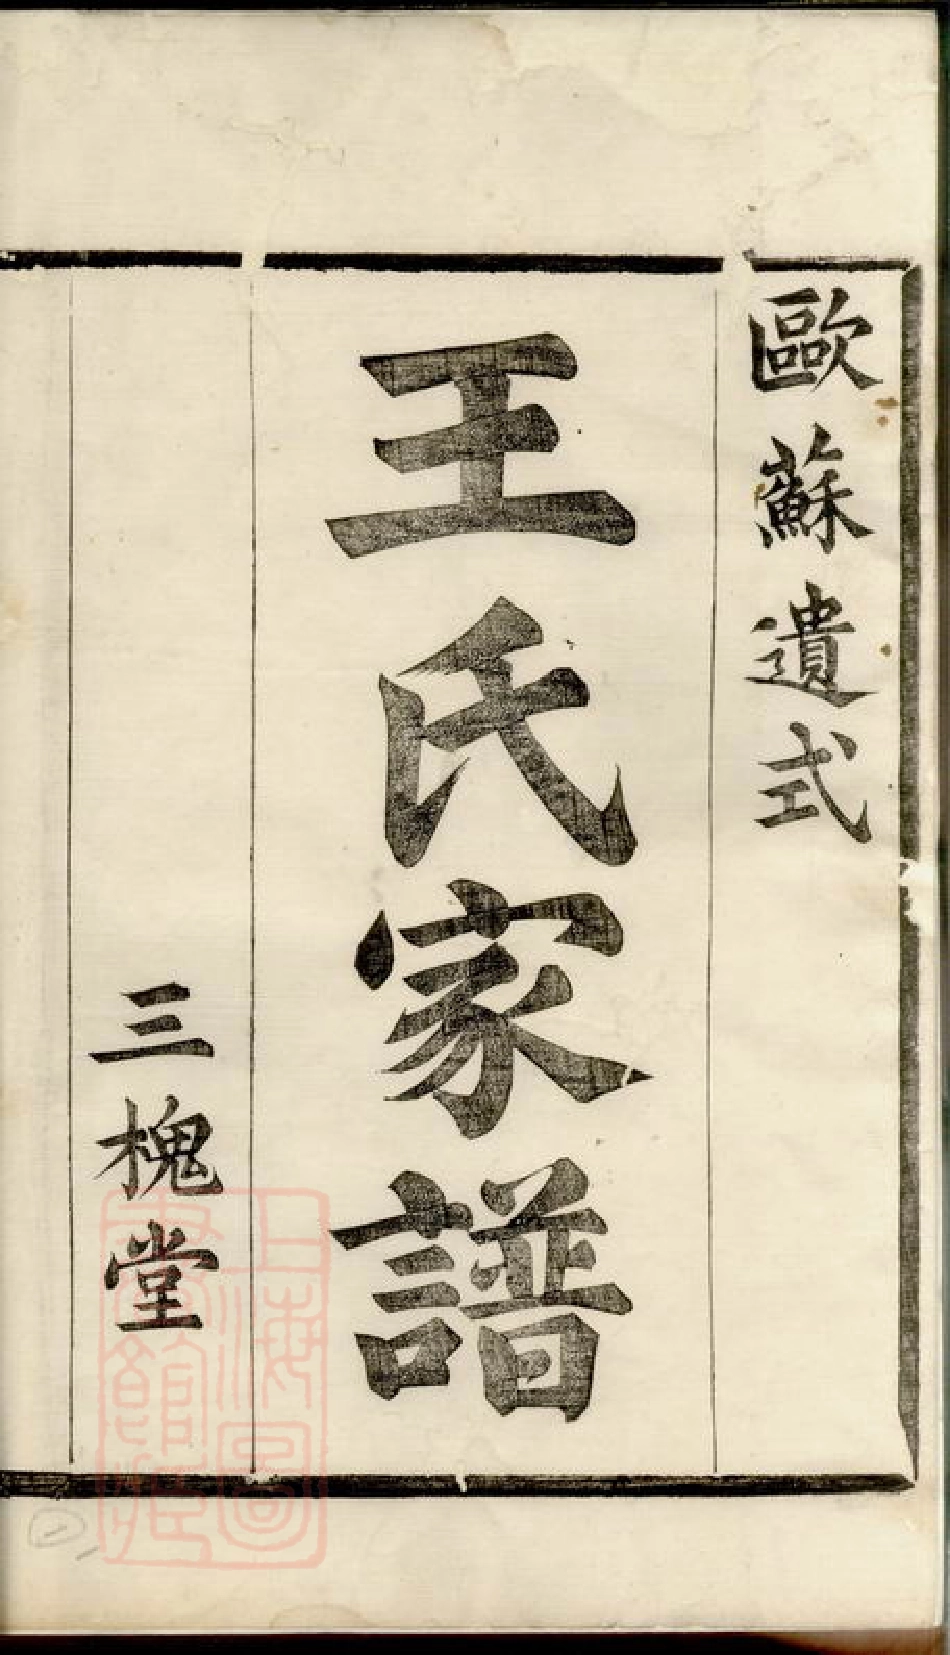 歐蘇遺式
王氏家譜
三槐堂
上海圖
書館藏